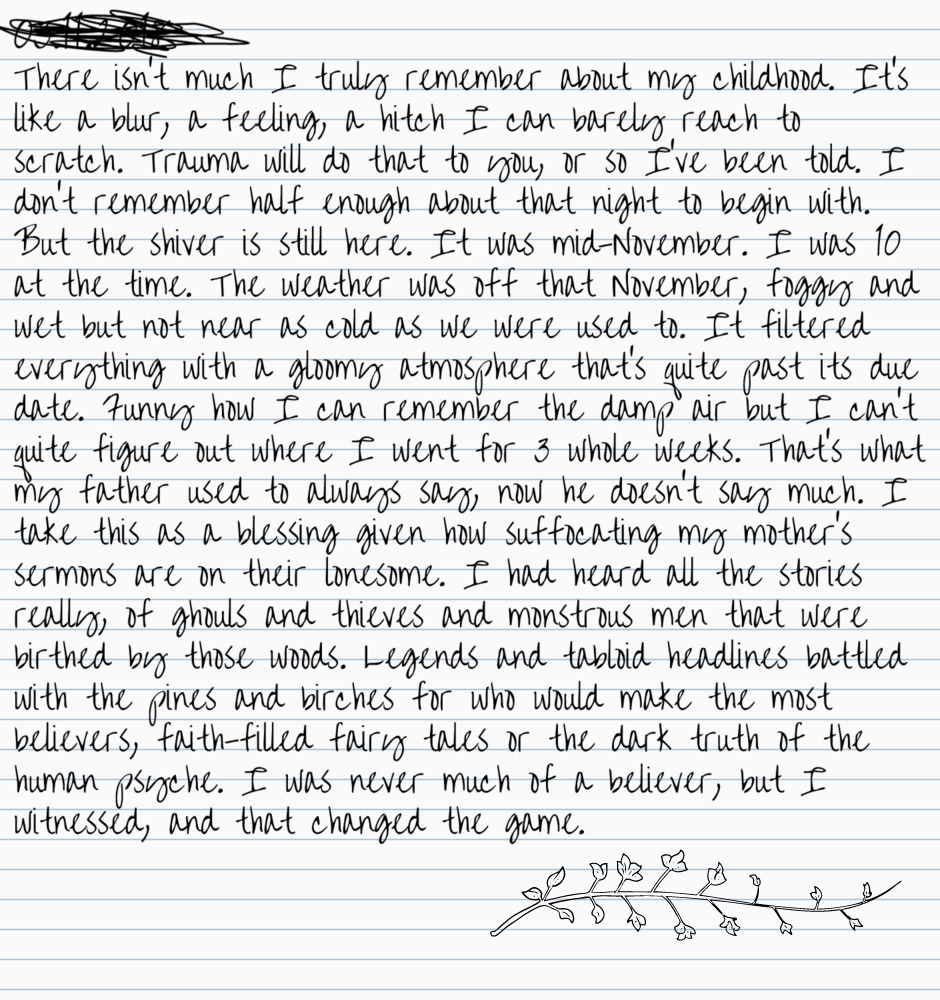 There isn't much I truly remember about my childhood. It's
like a blur, a feeling, a hitch I can barely reach to
scratch. Trauma will do that to you, or so I've been told. I
don't remember half enough about that night to begin with.
But the shiver is still here. It was mid-November. I was 10
at the time. The weather was off that November, foggy and
wet but not near as cold as we were used to. It filtered
everything with a gloomy atmosphere that's quite past its due
date. Funny how I can remember the damp air but I can't
quite figure out where I went for 3 whole weeks. That's what
my father used to always say, now he doesn't say much. I
take this as a blessing given how suffocating my mother's
sermons are on their lonesome. I had heard all the stories
really, of ghouls and thieves and monstrous men that were
birthed by those woods. Legends and tabloid headlines battled
with the pines and birches for who would make the most
believers, faith-filled fairy tales or the dark truth of the
human psyche. I was never much of a believer, but I
witnessed, and that changed the game.